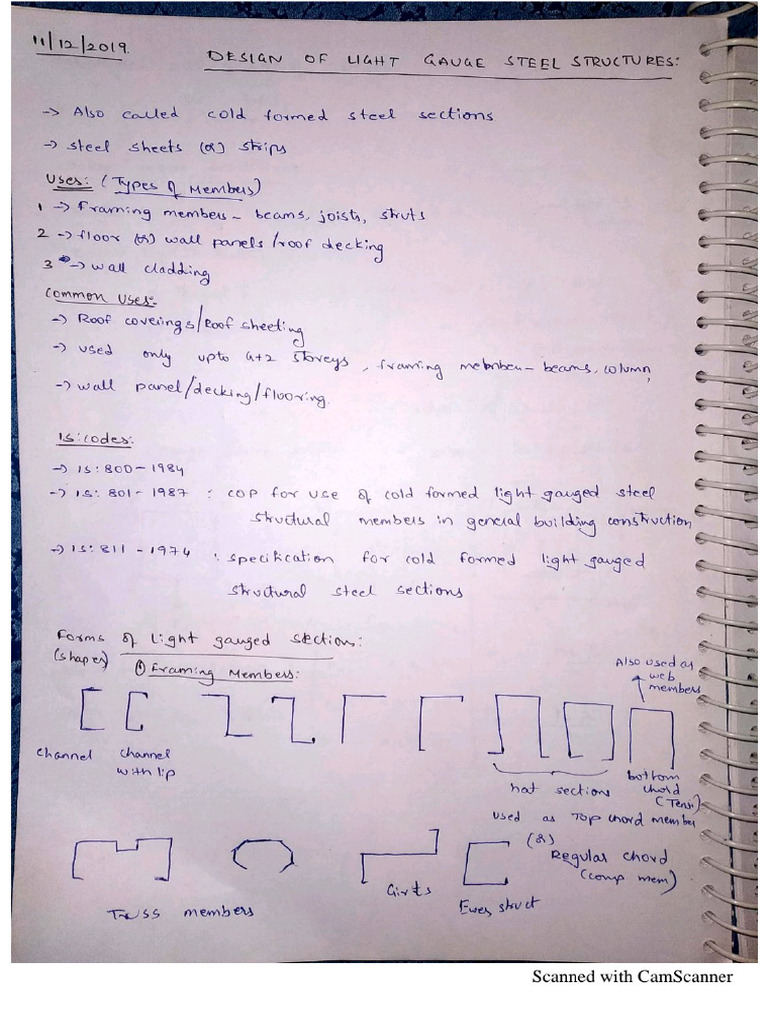 11/12/2019.
DESIGN OF LIGHT GAUGE STEEL STRUCTURES:
-> Also called cold formed steel sections
-> steel sheets (or) strips
Uses: (Types of Members)
1 -> Framing members - beams, joists, struts
2 -> floor (or) wall panels/roof decking
3 -> wall cladding
Common Uses:-
-> Roof coverings/Roof sheeting
-> used only upto G+2 storeys, framing member - beams, column,
-> wall panel/decking/flooring.
IS:codes:
-> IS: 800-1984
-> IS: 801-1987 : COP for use of cold formed light gauged steel
structural members in general building construction
-> IS: 811-1974 : specification for cold formed light gauged
structural steel sections
Forms of light gauged section:
(shapes) ① Framing Members:
Also used as
web
members
channel
channel
with lip
hat sections
bottom
chord
(Tens)
used as Top chord member
(or)
Regular chord
(comp mem)
Truss members
Girts
Eves strut
Scanned with CamScanner